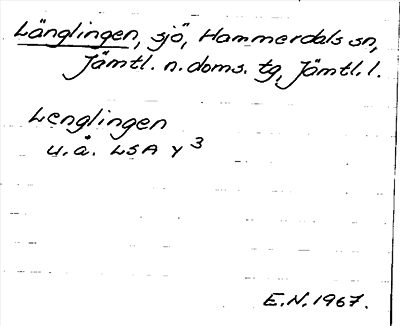 Länglingen, sjö, Hammerdals sn,
Jämtl. n. doms. tg, Jämtl. l.
Lenglingen
u. å. LSA Y 3
E.N. 1967.